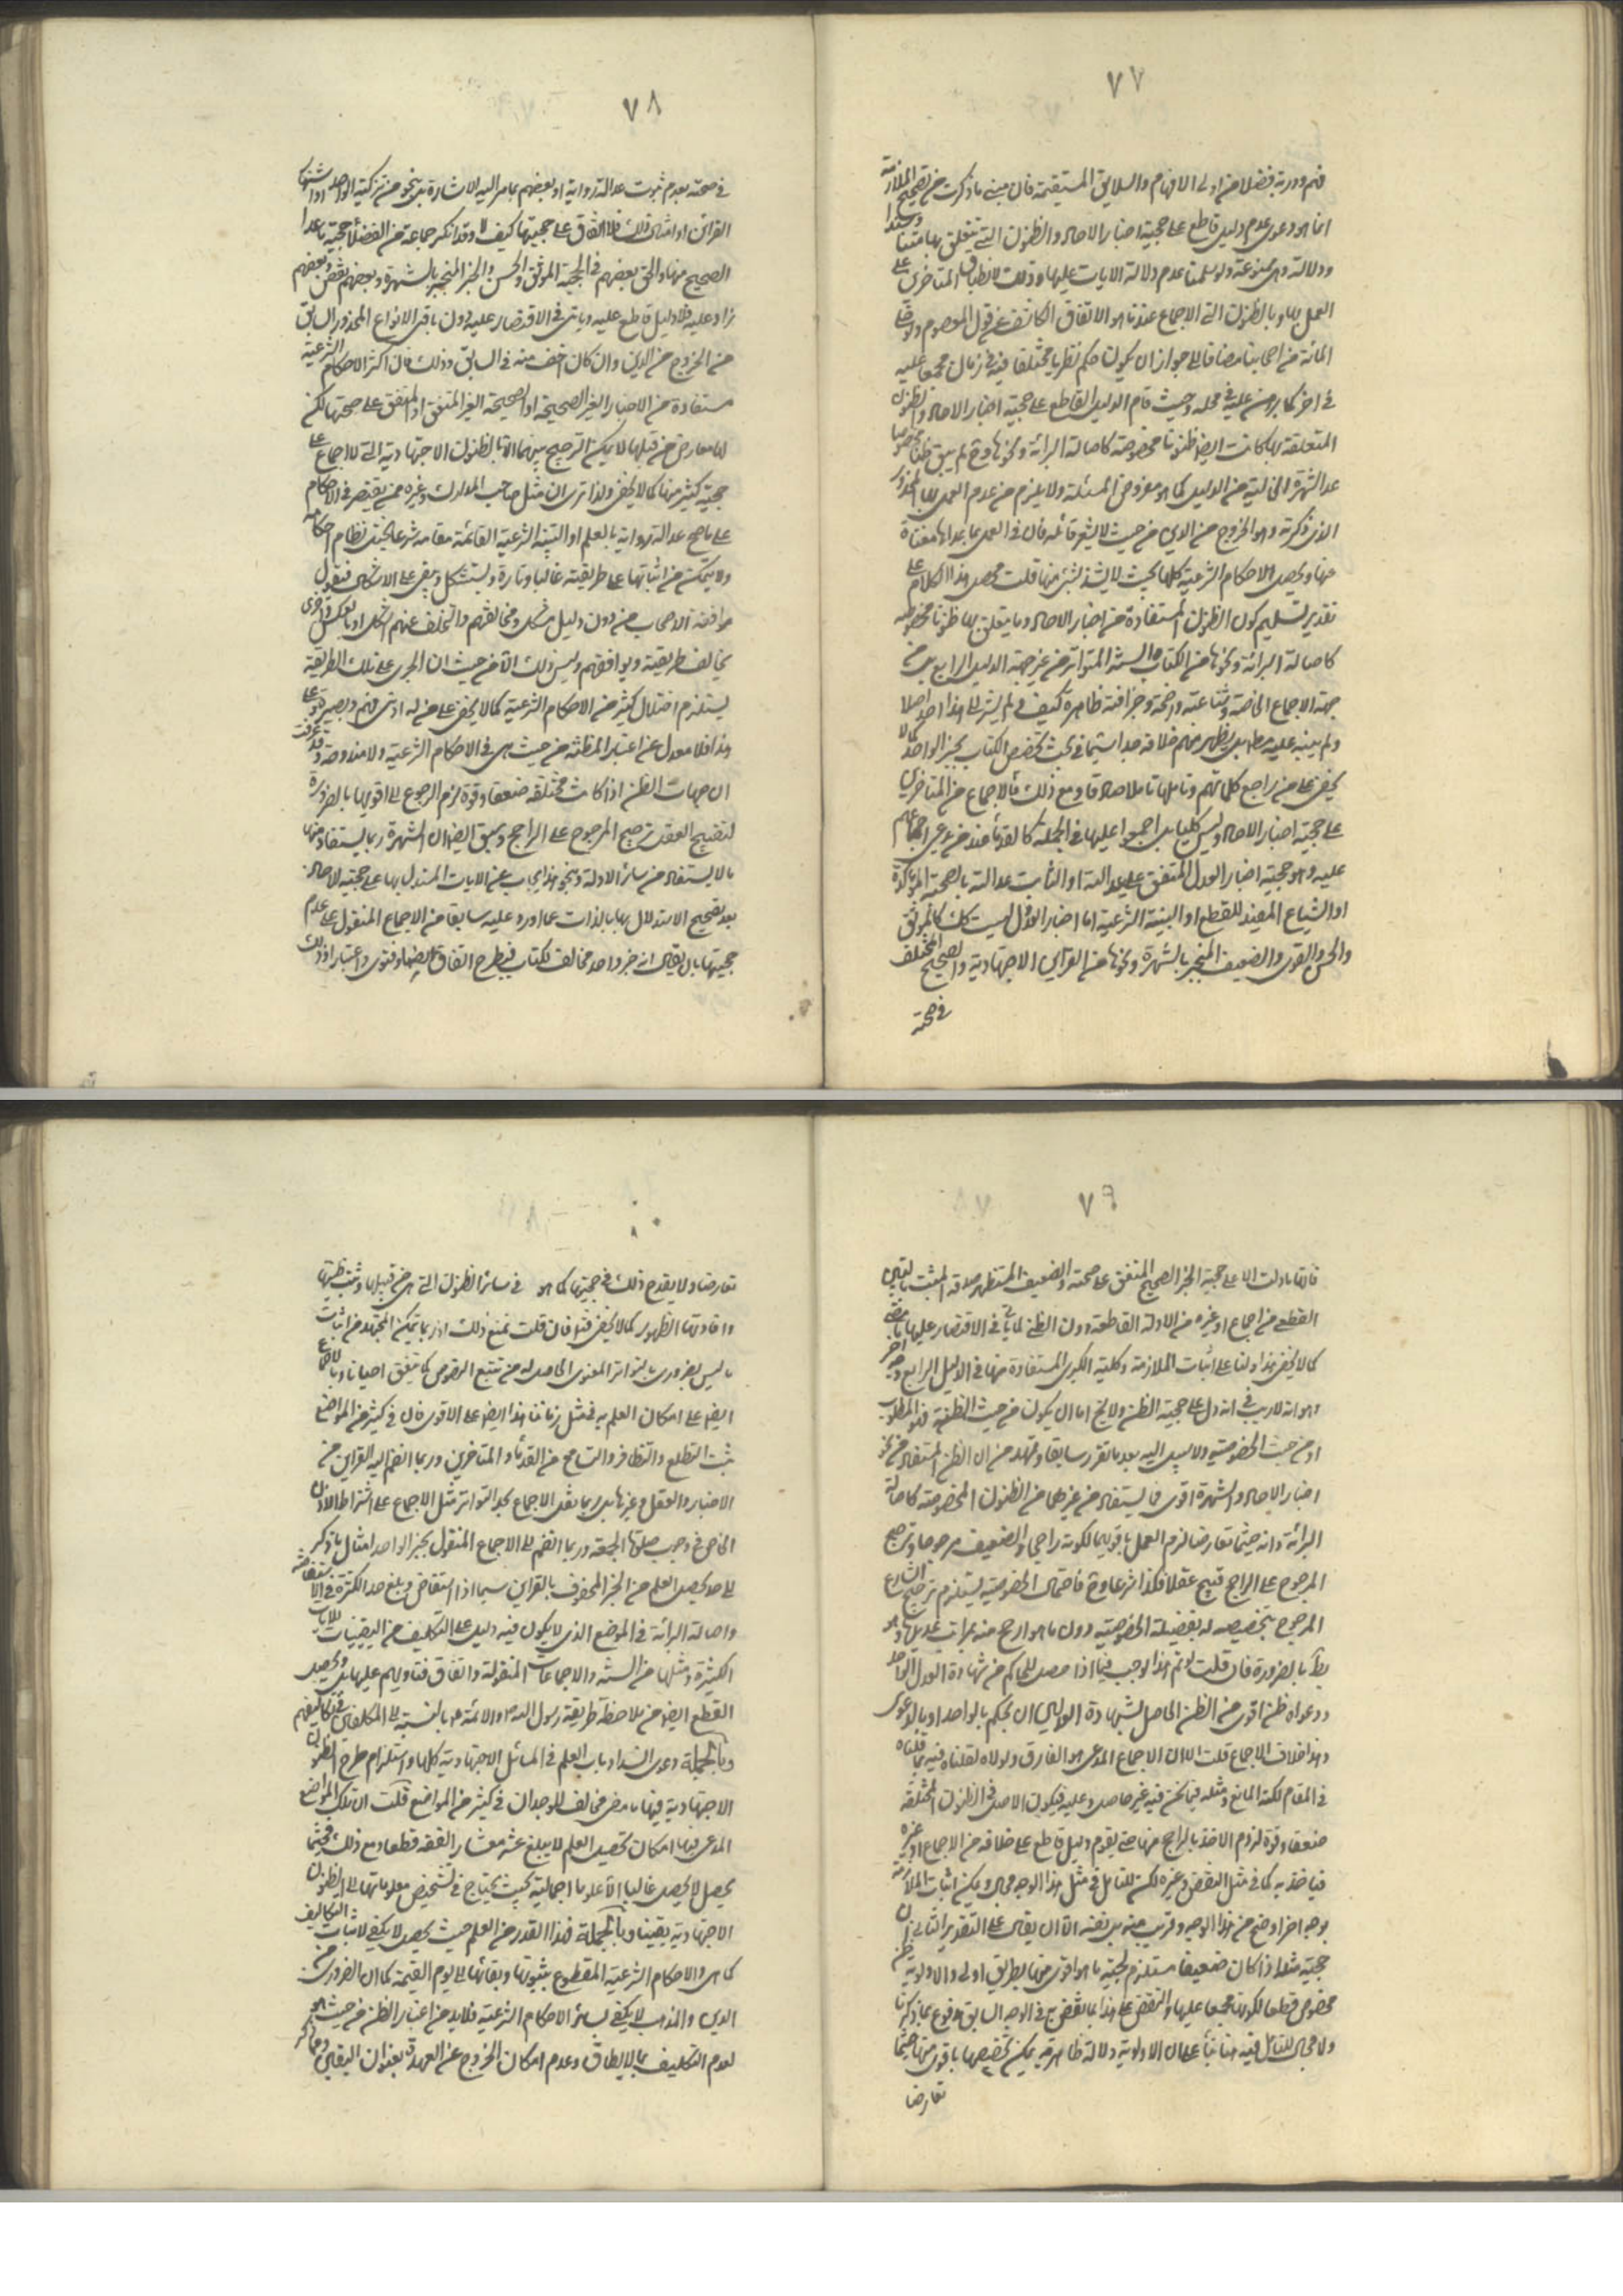 ٧٧
فهم ودربة فضلا عن اولى الافهام والسلايق المستقيمة فان مبنى ما ذكرت من تصحيح الملازمة
انما هو دعوى عدم دليل قاطع على حجية اخبار الاحاد والظنون التي يتعلق بها متنا وسندا
ودلالة وهى ممنوعة ولو سلمنا عدم دلالة الايات عليها وذلك لانطباق المتاخرين على
العمل بها وبالظنون التي الاجماع عندنا هو الاتفاق الكاشف عن قول المعصوم
المائة من اصحابنا مضافا الى جواز ان يكون حكم نظريا مختلفا فيه في زمان مجمعا عليه
في اخر كما برهن عليه في محله وحيث قام الدليل القاطع على حجية اخبار الاحاد والظنون
المتعلقة بها كانت ايضا ظنونا مخصوصة كاصالة البرائة ونحوها وح لم يبق ظنا مخصوصا
عدا الشهرة الخالية عن الدليل كما هو مفروض المسئلة ولا يلزم من عدم العمل بها المحذور
الذى ذكرته وهو الخروج من الدين من حيث لا يشعر قائله فان في العمل بما عداها مغناة
عنها ويحصل الاحكام الشرعية كلها بحيث لا يشذ شئ منها قلت محصل هذا الكلام على
تقدير تسليم كون الظنون المستفادة من اخبار الاحاد وما يتعلق بها ظنونا مخصوصة
كاصالة البرائة ونحوها من الكتاب والسنة المتواترة من غير جهة الدليل الرابع بل من
جهة الاجماع الخاصة وشناعته واضحة وجزافته ظاهرة كيف ولم يشر الى هذا احد اصلا
ولم ينبه عليه مطلقا بل يظهر منهم خلافه جدا سيما في بحث تخصيص الكتاب بخبر الواحد كما لا
يخفى على من راجع كلماتهم وتاملها تاملا صادقا ومع ذلك فالاجماع من المتاخرين
على حجية اخبار الاحاد وليس كليا بل اجمعوا عليها في الجملة كالقدماء عند من يدعى اجماعهم
عليه وهو حجية اخبار العدل المتفق على عدالته او الثابت عدالته بالصحبة المؤكدة
او الشياع المفيد للقطع او البينة الشرعية اما اخبار العدل ليست كك كالموثق
والحسن والقوى والضعيف المنجبر بالشهرة ونحوها من القراين الاجتهادية والصحيح المختلف
في صحته
٧٨
في صحته بعدم ثبوت عدالة رواته او بعضهم بما مر اليه الاشارة بل بنحو من تزكية الواحد او
القراين او امثال ذلك فلا اتفاق على حجيتها كيف لا وقد انكر جماعة من الفضلاء حجية ما عدا
الصحيح منها والحق بعضهم في الحجية الموثق والحسن والخبر المنجبر بالشهرة وبعضهم نقص وبعضهم
زاد عليه فلا دليل قاطع عليه وياتى في الاقتصار عليه دون باقى الانواع المحذور السابق
من الخروج من الدين وان كان اخف منه في السابق وذلك فان اكثر الاحكام الشرعية
مستفادة من الاخبار الغير الصحيحة او الصحيحة الغير المتفق او المتفق على صحتها لكن
لها معارض من قبلها لا يمكن الترجيح بينهما الا بالظنون الاجتهادية التي لا اجماع على
حجية كثير منها كما لا يخفى ولذا ترى ان مثل صاحب المدارك وغيره ممن يقتصر في الاحكام
على ما صح عدالة رواته بالعلم او البينة الشرعية القائمة مقامه شرعا يختل نظام احكامه
ولا يتمكن من اثباتها على طريقته غالبا وتارة يستشكل ويبقى على الاشكال فيقول
موافقة الاصحاب من دون دليل مشكل ومخالفتهم والتخلف عنهم اشكل او بالعكس واخرى
يخالف طريقته ويوافقهم وليس ذلك الا من حيث ان الجرى على تلك الطريقة
يستلزم اختلال كثير من الاحكام الشرعية كما لا يخفى على من له ادنى فهم وبصيرة وعلى
هذا فلا معدل عن اعتبار المظنة من حيث هى في الاحكام الشرعية ولا مندوحة وقد عرفت
ان جهات الظن اذا كانت مختلفة ضعفا وقوة لزم الرجوع الى اقويها بالضرورة
لتقبيح العقل ترجيح المرجوح على الراجح وسبق ايضا ان الشهرة ربما يستفاد منها
ما لا يستفاد من سائر الادلة وبنحو هذا يجاب عن الايات المستدل بها على حجية الاحاد
بعد تصحيح الاستدلال بها بالذات عما اورد عليه سابقا من الاجماع المنقول على عدم
حجيتها بان يقال انه خبر واحد مخالف للكتاب فيطرح اتفاقا ايضا وفتوى واعتبارا وذلك
٧٩
فانها ما دلت الا على حجية الخبر الصحيح المتفق على صحته والضعيف المستظهر صدقه المثبت بالتبين
القطعى من اجماع او غيره من الادلة القاطعة دون الظنى لما ياتى في الاقتصار عليها ما مضى
كما لا يخفى هذا ولنا على اثبات الملازمة وكلية الكبرى المستفادة منها في الدليل الرابع وجه اخر
وهو انه لا ريب في انه دل على حجية الظن ولا يخ اما ان يكون من حيث الظنية فهو المطلوب
او من حيث الخصوصية ولا سبيل اليه بعد ما تقرر سابقا وتمهد من ان الظن المستفاد من نحو
اخبار الاحاد والشهرة اقوى مما يستفاد من غيرهما من الظنون المخصوصة كاصالة
البرائة وانه حيثما تعارضا لزم العمل باقويهما لكونه راجحا والضعيف مرجوحا وترجيح
المرجوح على الراجح قبيح عقلا فكذا شرعا وح فاحتمال الخصوصية يستلزم ترجيح الشارع
المرجوح بتخصيصه له بفضيلة الخصوصية دون ما هو ارجح منه بمراتب عديدة وهو
بط بالضرورة فان قلت لو تم هذا لوجب فيما اذا حصل للحاكم من شهادة العدل الواحد
ودعواه ظن اقوى من الظن الحاصل بشهادة العدلين ان يحكم بالواحد او بالدعوى
وهذا خلاف الاجماع قلت الا ان الاجماع المدعى هو الفارق ولولاه لقلنا فيه بما قلناه
في المقام لكنه المانع ومثله فيما نحن فيه غير حاصل وعليه فيكون الاصل في الظنون المختلفة
ضعفا وقوة لزوم الاخذ بالراجح منها حتى يقوم دليل قاطع على خلافه من الاجماع او غيره
فياخذ به كما في مثل النقض وغيره لكن للتامل في مثل هذا الوجه مجال ويمكن اثبات الملازمة
بوجه اخر اوضح من هذا الوجه وقريب منه بل نفسه الا ان يقال على التقدير الثانى ان
حجيته مثلا اذا كان ضعيفا مستلزم لحجية ما هو اقوى منها بطريق اولى والاولوية ظن
مخصوص قطعا لكونها مجمعا عليها والنقض على هذا بما نقض به في الوجه السابق مدفوع بما ذكرنا
ولا مجال للتامل فيه هنا بناء على ان الاولوية دلالة ظاهرية يمكن تخصيصها باقوى منها حيثما
تعارضا
٨٠
تعارضا ولا يقدح ذلك في حجيتها كما هو في سائر الظنون التي هى من قبيلها وثبت ظنيتها
وافادتها الظهور كما لا يخفى هذا فان قلت نمنع ذلك اذ ربما يتمكن المجتهد من اثبات
ما ليس بضرورى بالتواتر المعنوى الحاصل له من تتبع النصوص كما يتفق احيانا وبالاجماع
ايضا على امكان العلم به في مثل زماننا هذا ايضا على الاقوى فان في كثير من المواضع
يثبت التطلع والتظافر والتسامح من القدماء والمتاخرين وربما انضم اليه القراين من
الاخبار والعقل وغيرهما بل ربما نقل الاجماع بحد التواتر مثل الاجماع على اشتراط الاذن
الخاص في وجوب صلوة الجمعة وربما انضم الى الاجماع المنقول بخبر الواحد امثال ما ذكر
الى حد يحصل العلم من الخبر المحفوف بالقراين سيما اذا استفاض وبلغ حد الكثرة في الاستفاضة
واصالة البرائة في الموضع الذى لا يكون فيه دليل على التكليف من اليقينيات للايات
الكثيرة ومثلها من السنة والاجماعات المنقولة واتفاق فتاويهم عليها بل ويحصل
القطع ايضا من ملاحظة طريقة رسول الله ص والائمة ع بالنسبة الى المكلفين في تكاليفهم
وبالجملة دعوى انسداد باب العلم في المسائل الاجتهادية كلها واستلزام طرح الظنون
الاجتهادية فيها ما مضى مخالف للوجدان في كثير من المواضع قلت ان تلك المواضع
المدعى فيها امكان تحصيل العلم لا يبلغ عشر معشار الفقه قطعا ومع ذلك فحيثما
يحصل لا يحصل غالبا الا علوما اجمالية بحيث يحتاج في تشخيص معلوماتها الى الظنون
الاجتهادية يقينا وبالجملة فهذا القدر من العلم حيث يحصل لا يكفى لاثبات التكاليف
كما هى والاحكام الشرعية المقطوع بثبوتها وبقائها الى يوم القيمة كما ان الضرورى من
الدين والمذهب لا يكفى لسائر الاحكام الشرعية فلابد من اعتبار الظن من حيث هو
لعدم التكليف بما لا يطاق وعدم امكان الخروج عن العهدة بعنوان اليقين